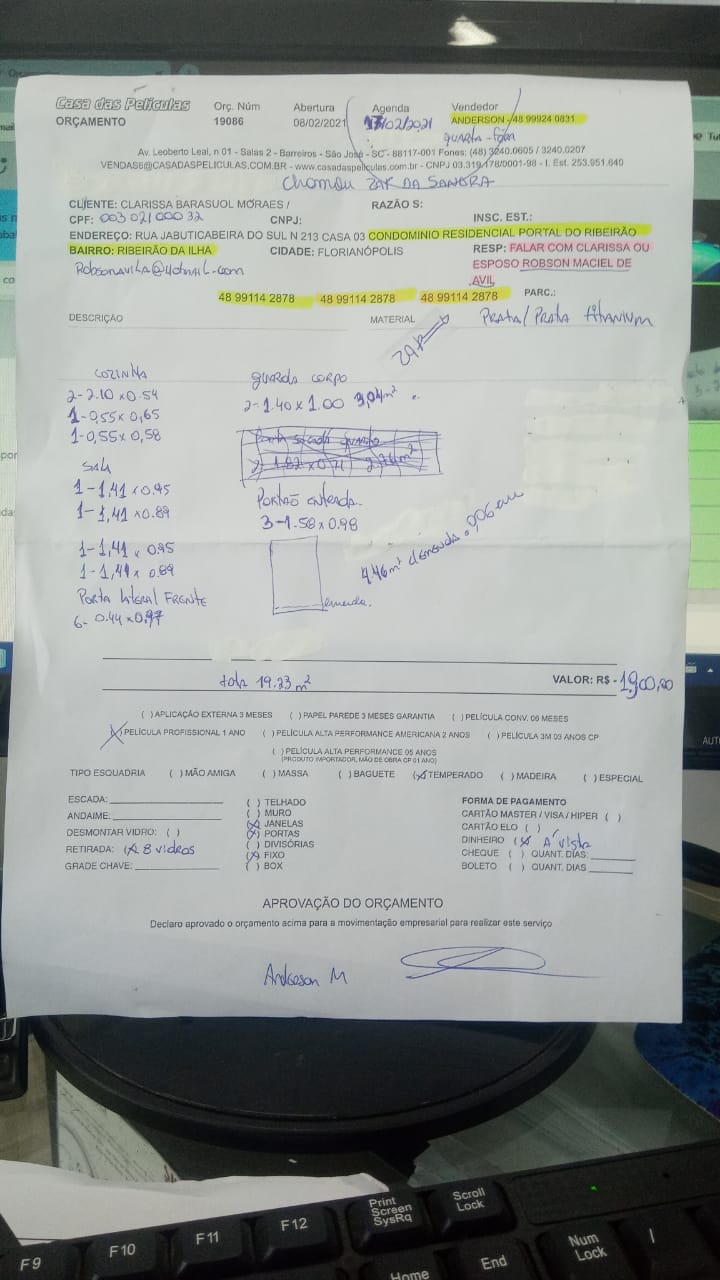 Casa das Películas
ORÇAMENTO
Orç. Núm
19086
Abertura
08/02/2021
Agenda
17/02/2021
Vendedor
ANDERSON - 48 99924 0831
quarta-feira
Av. Leoberto Leal, n 01 - Salas 2 - Barreiros - São José - SC - 88117-001 Fones: (48) 3240.0605 / 3240.0207
VENDAS6@CASADASPELICULAS.COM.BR - www.casadaspeliculas.com.br - CNPJ 03.319.178/0001-98 - I. Est. 253.951.640
DA SANDRA
CLIENTE: CLARISSA BARASUOL MORAES / RAZÃO S:
CPF: 003 021 000 32 CNPJ: INSC. EST.:
ENDEREÇO: RUA JABUTICABEIRA DO SUL N 213 CASA 03 CONDOMINIO RESIDENCIAL PORTAL DO RIBEIRÃO
BAIRRO: RIBEIRÃO DA ILHA CIDADE: FLORIANÓPOLIS RESP: FALAR COM CLARISSA OU
ESPOSO ROBSON MACIEL DE
AVIL
Robsonavila@hotmail.com
48 99114 2878 48 99114 2878 48 99114 2878 PARC.:
DESCRIÇÃO MATERIAL PRATA/PRATA titANIUM
COZINHA
2-2.10 x 0.54
1-0,55 x 0,65
1-0,55 x 0,58
Sala
1-1,41 x 0.95
1-1,41 x 0.89
1-1,41 x 0.95
1-1,41 x 0.89
PORTA lateral FRENTE
6-0.44 x 0.97
guarda CORPO
2-1.40 x 1.00 3,04m²
PORTÃO entrada
3-1.58 x 0.98
emenda.
4.46m²
total 19.23 m²
VALOR: R$ - 1.900,00
( ) APLICAÇÃO EXTERNA 3 MESES ( ) PAPEL PAREDE 3 MESES GARANTIA ( ) PELÍCULA CONV. 06 MESES
(X) PELÍCULA PROFISSIONAL 1 ANO ( ) PELÍCULA ALTA PERFORMANCE AMERICANA 2 ANOS ( ) PELÍCULA 3M 03 ANOS CP
( ) PELÍCULA ALTA PERFORMANCE 05 ANOS
(PRODUTO IMPORTADOR, MÃO DE OBRA CP 01 ANO)
TIPO ESQUADRIA ( ) MÃO AMIGA ( ) MASSA ( ) BAGUETE (X) TEMPERADO ( ) MADEIRA ( ) ESPECIAL
ESCADA:
ANDAIME:
DESMONTAR VIDRO: ( )
RETIRADA: (X 8 vidros
GRADE CHAVE:
( ) TELHADO
( ) MURO
(X) JANELAS
(X) PORTAS
( ) DIVISÓRIAS
(X) FIXO
( ) BOX
FORMA DE PAGAMENTO
CARTÃO MASTER / VISA / HIPER ( )
CARTÃO ELO ( )
DINHEIRO (X Á vista
CHEQUE ( ) QUANT. DIAS:
BOLETO ( ) QUANT. DIAS
APROVAÇÃO DO ORÇAMENTO
Declaro aprovado o orçamento acima para a movimentação empresarial para realizar este serviço
Anderson M
Print
Screen
SysRq
Scroll
Lock
F9
F10
F11
F12
Home
End
Num
Lock